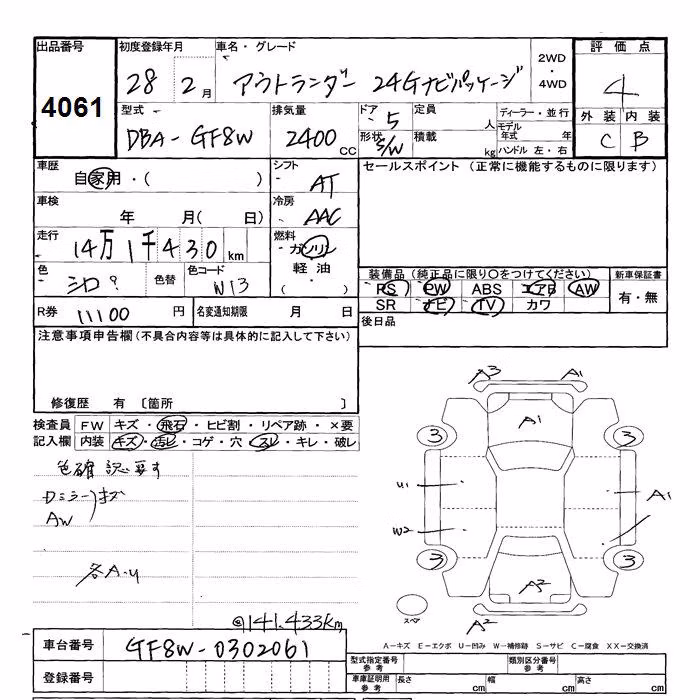 出品番号 初度登録年月 車名・グレード 2WD・4WD 評価点
4061 28 2月 アウトランダー 24Gナビパッケージ 4
型式 排気量 ドア 5 定員 人 ディーラー・並行 外装 内装
DBA-GF8W 2400CC 形状 S/W 積載 kg モデル年式 年 ハンドル 左・右 C B
車歴 自家用・( ) シフト AT セールスポイント (正常に機能するものに限ります)
車検 年 月( 日) 冷房 AAC
走行 14万1千430km 燃料 ガソリン
色 シロ? 色替 色コード W13 軽油・( ) 装備品(純正品に限り○をつけてください) 新車保証書
PS PW ABS エアB AW 有・無
R券 11100円 名変通知期限 月 日 SR ナビ TV カワ
注意事項申告欄(不具合内容等は具体的に記入して下さい) 後日品
修復歴 有 〔箇所 〕
検査員 FW キズ・飛石・ヒビ割・リペア跡・×要
記入欄 内装 キズ・汚レ・コゲ・穴・スレ・キレ・破レ
色確認要す
Dミラーキズ
AW
各A-U
@141,433km
A3 A1
A1
3 3
U1 A1
W2
3 3
A2
スペア
A2
A-キズ E-エクボ U-凹み W-補修跡 S-サビ C-腐食 XX-交換済
車台番号 GF8W-0302061
型式指定番号 参考 類別区分番号 参考
登録番号 車庫証明用 参考 長さ cm 幅 cm 高さ cm